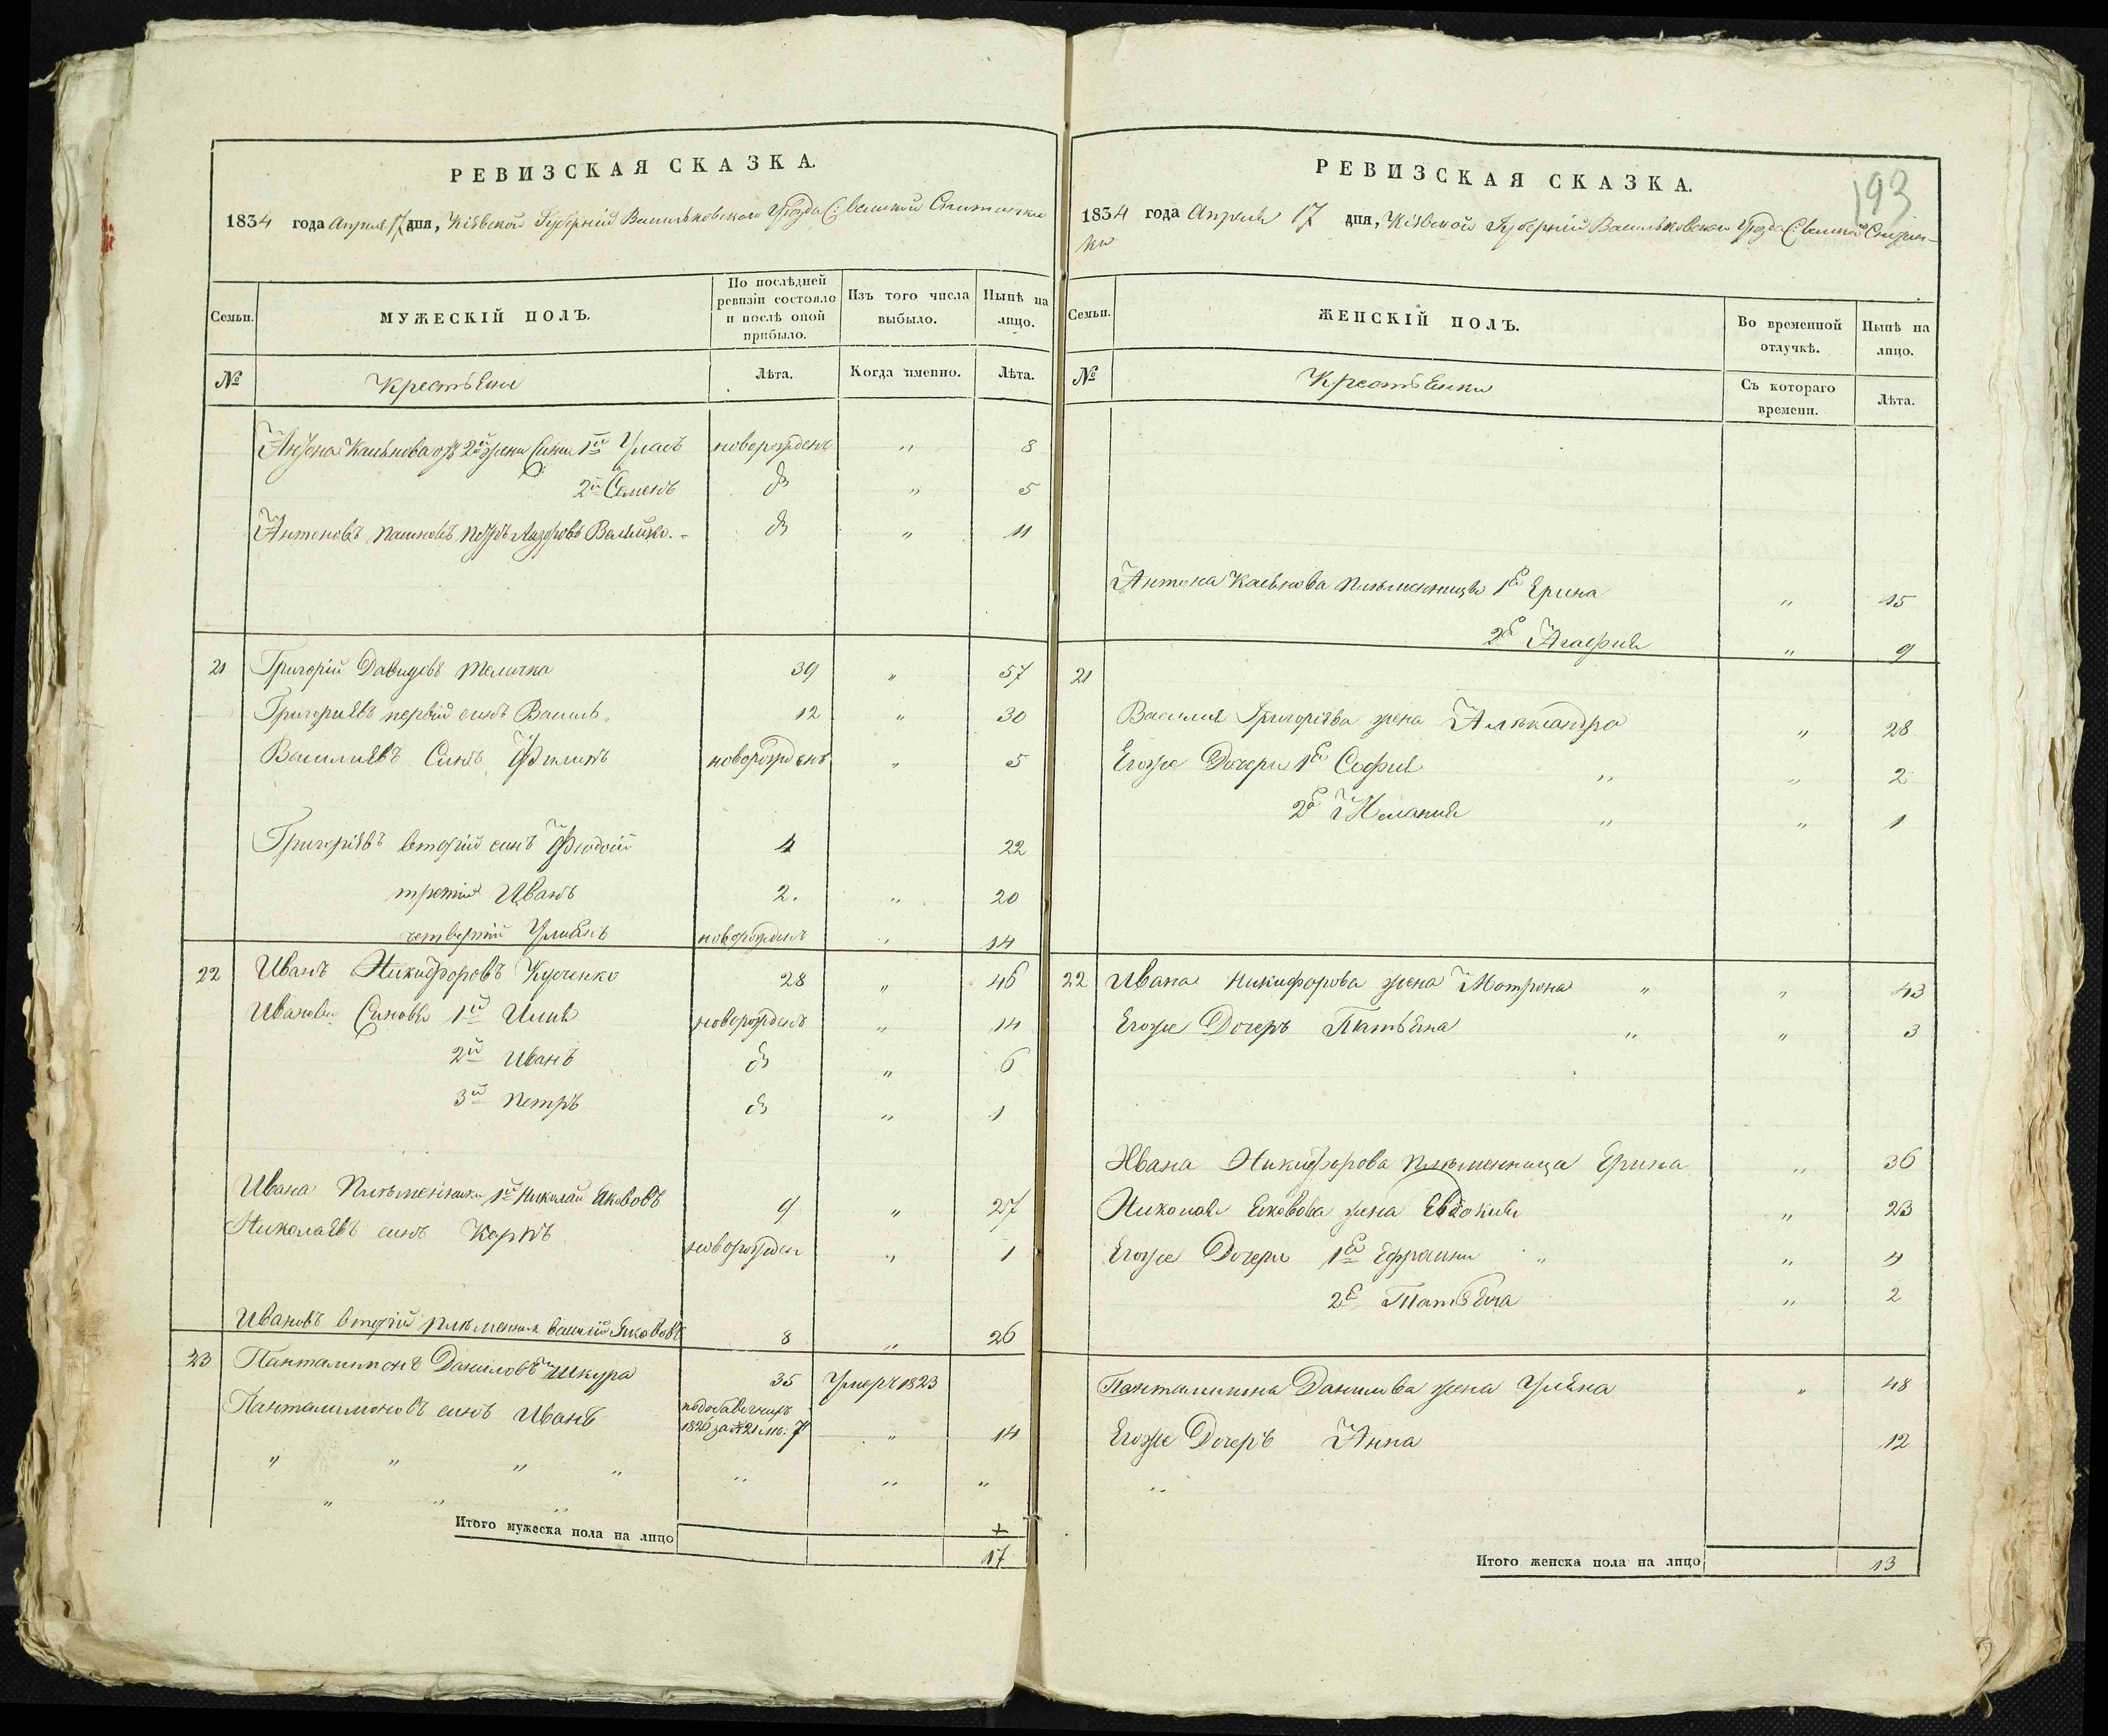 РЕВИЗСКАЯ СКАЗКА.
1834 года Апреля 17 дня, Кіевской Губерніи Васильковского Уезда С: великой Снитинки
Семьи.
МУЖЕСКІЙ ПОЛЪ.
По послѣдней ревизіи состояло и послѣ оной прибыло.
Изъ того числа выбыло.
Нынѣ на лицо.
№
Крестьяни
Лѣта.
Когда именно.
Лѣта.
Антона жени Сини 1й Уласъ новорожденъ " 8
2й Семенъ " 5
Антоновъ " 11
21 Григорій Давидовъ Теличка 39 " 57
Григориевъ первій синъ Василь 12 " 30
Василиевъ Синъ Филипъ новорожденъ " 5
Григоріевъ вторій синъ Феодосій 4 22
третій Иванъ 2. " 20
четвертій Улиянъ новорожденъ " 14
22 Иванъ Никифоровъ Куценко 28 " 46
Иванови Синовья 1й Илия новорожденъ " 14
2й Иванъ " 6
3й Петръ " 1
Ивана Племенники 1й Николай Якововъ 9 " 27
Николаевъ синъ Карпъ новорожден " 1
Ивановъ вторій племенник Василій Якововъ 8 " 26
23 Панталимонъ Даниловъ Шкура 35 Умеръ 1823
Панталимоновъ синъ Иванъ 1826 за № 21 " 14
" " " " " " "
" " "
Итого мужеска пола на лицо
17
РЕВИЗСКАЯ СКАЗКА.
193
1834 года Апреля 17 дня, Кіевской Губерній Васильковского Уезда С: великой Снитин-
ки
Семьи.
ЖЕНСКІЙ ПОЛЪ.
Во временной отлучкѣ.
Нынѣ на лицо.
№
Крестьянки
Съ котораго времени.
Лѣта.
Антона племенници 1я Ерина " 15
2я Агафия " 9
21
Василия Григоріева жена Александра " 28
Егоже Дочери 1я София " " 2
2я Мелания " " 1
22 Ивана Никифорова жена Мотрона " " 43
Егоже Дочеръ Татьяна " " 3
Ивана Никифорова племенница Ерина " 36
Николая Яковова жена Евдокия " 23
Егоже Дочери 1я " " 4
2я Татьяна " 2
Панталимона Данилова жена Улияна " 48
Егоже Дочеръ Анна 12
"
Итого женска пола на лицо 13